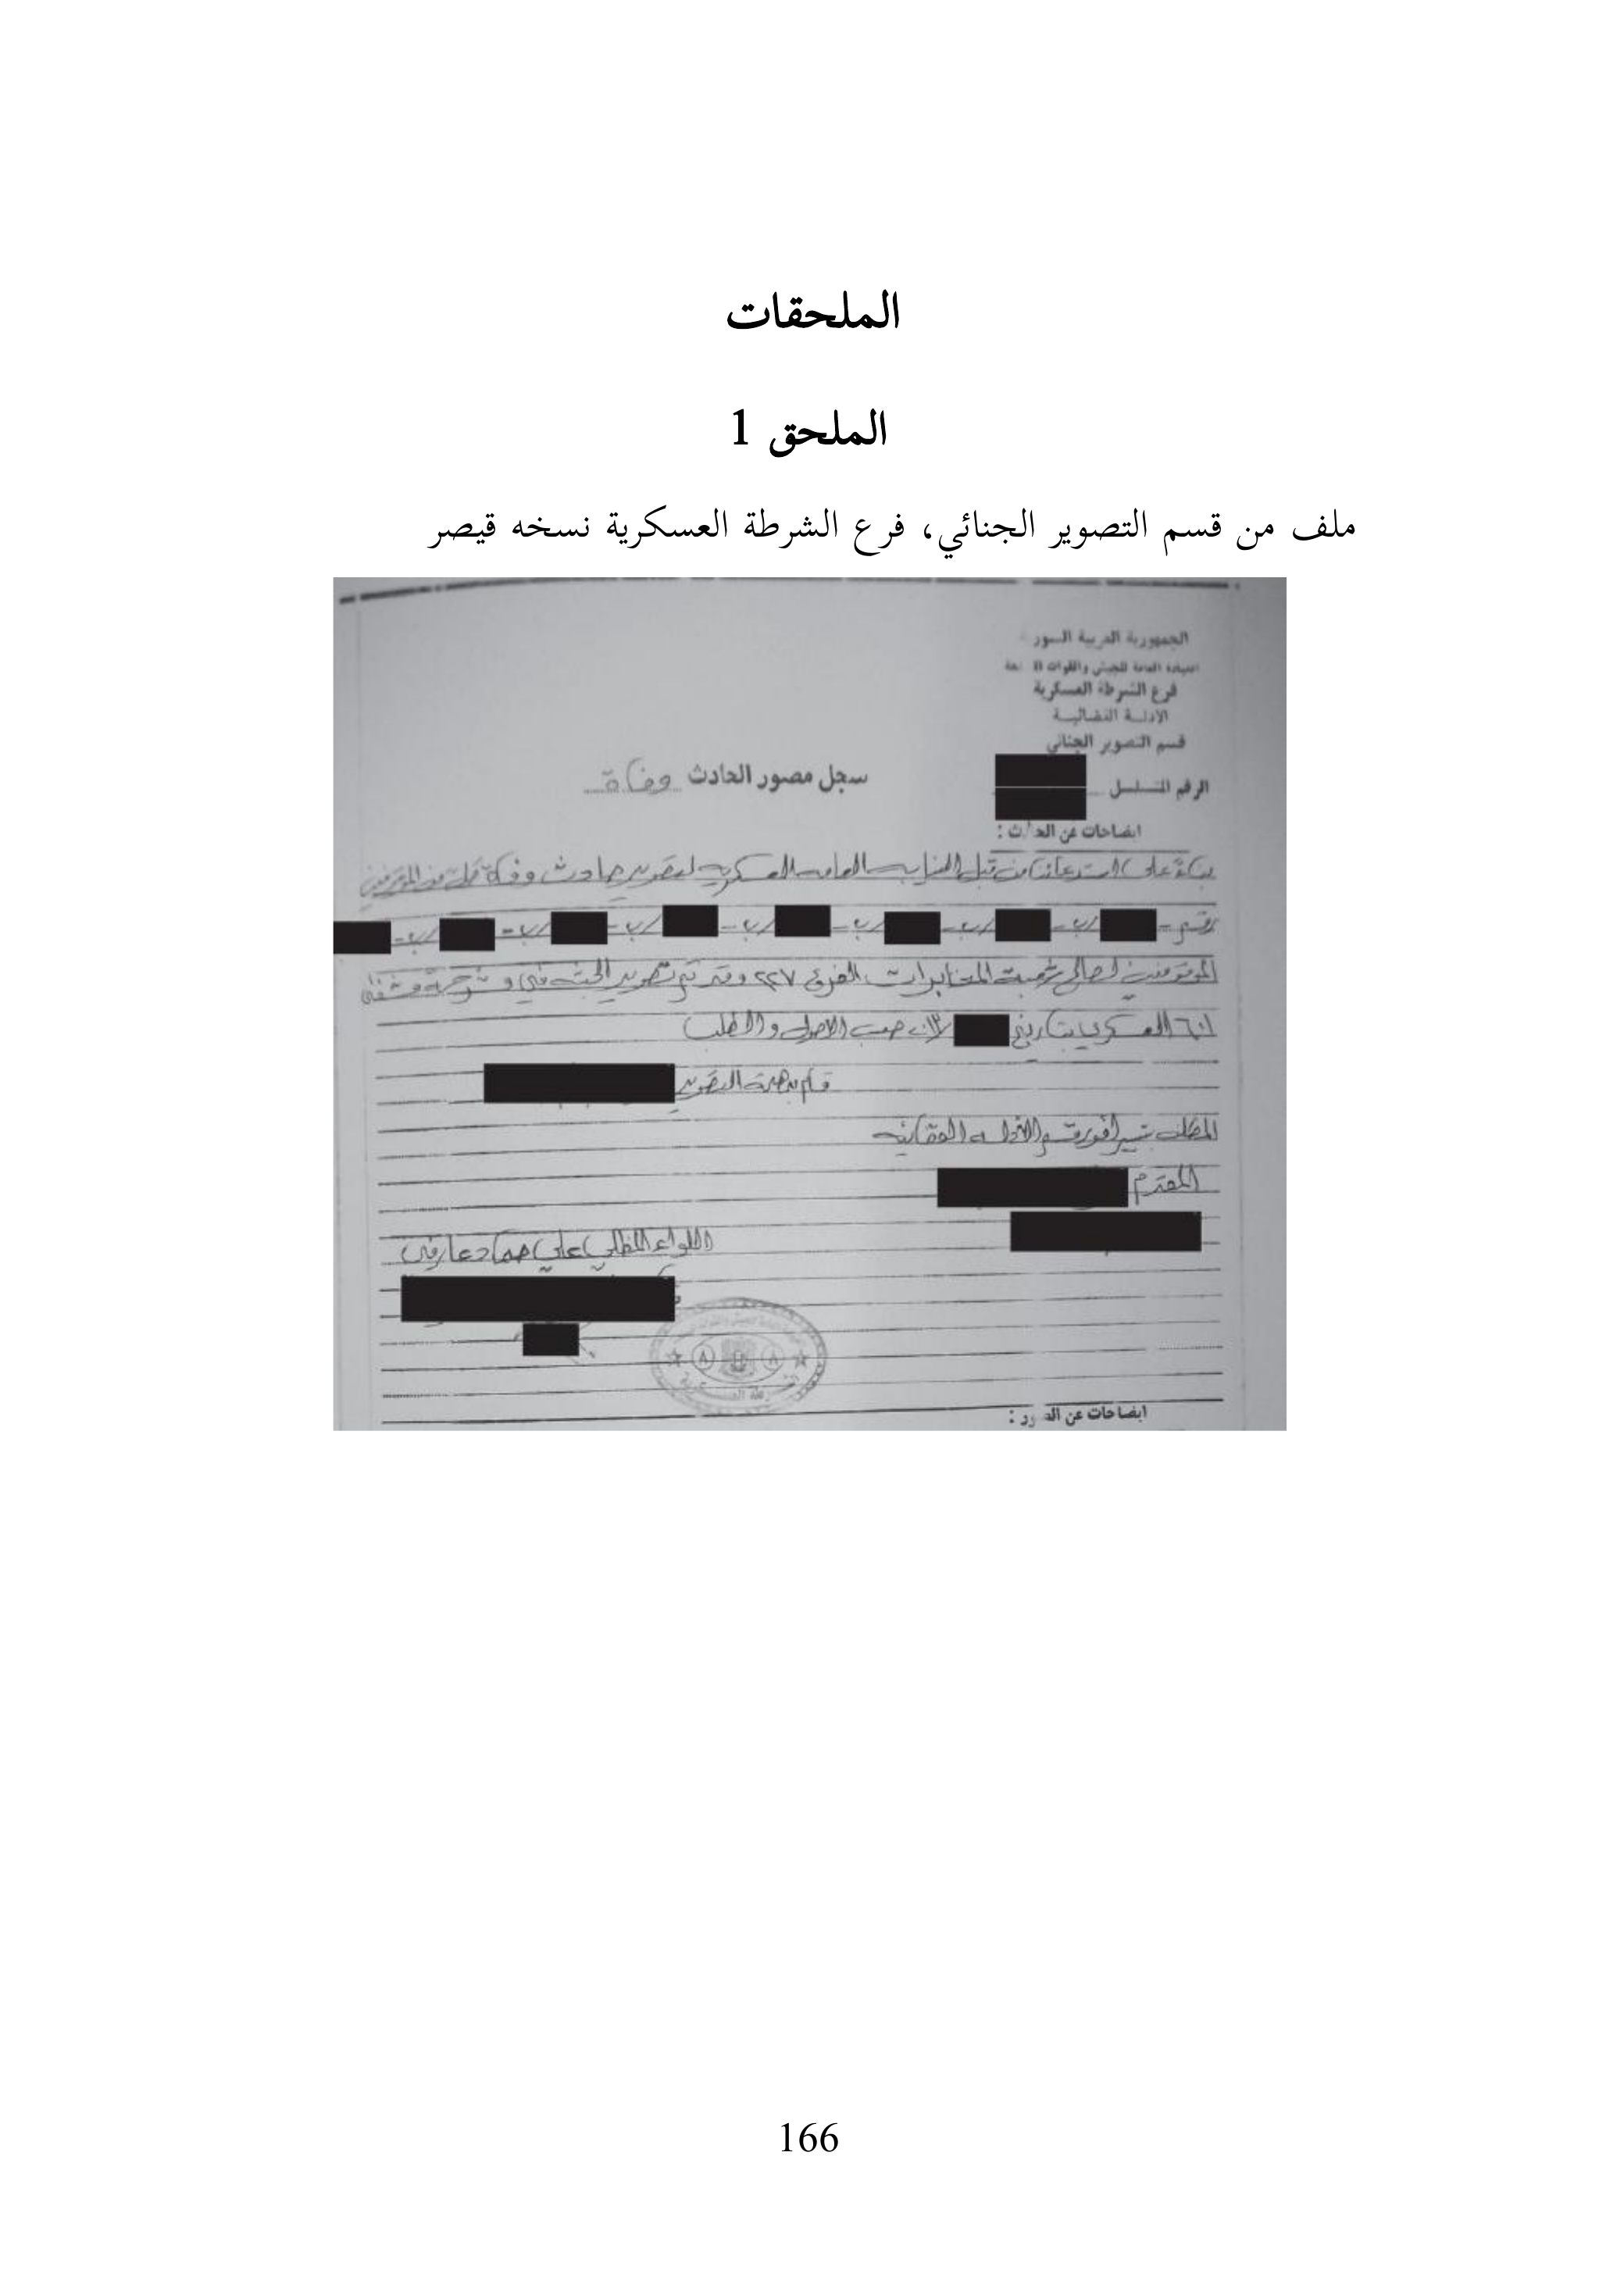 الملحقات
الملحق 1
ملف من قسم التصوير الجنائي، فرع الشرطة العسكرية نسخه قيصر
الجمهورية العربية السور
العامة للجيش والقوات
فرع الشرطة العسكرية
الادلة القضائية
قسم التصوير الجنائي
الرقم المتسلسل
سجل مصور الحادث وفاة
ايضاحات عن الحادث :
بناءً على استدعائنا من قبل النيابة العامة العسكرية لتصوير حادث وفاة كل من الموقوفين
رقم - /ب - /ب - /ب - /ب - /ب - /ب - /ب -
الموقوفين لصالح شعبة المخابرات الفرع ٢٢٧ وقد تم تصوير الجثث في مشفى
٦٠١ العسكري بتاريخ حسب الاصول والطلب
قام بمهمة التصوير
قسم الأدلة القضائية
المقدم
اللواء علي
ايضاحات عن الصور :
166